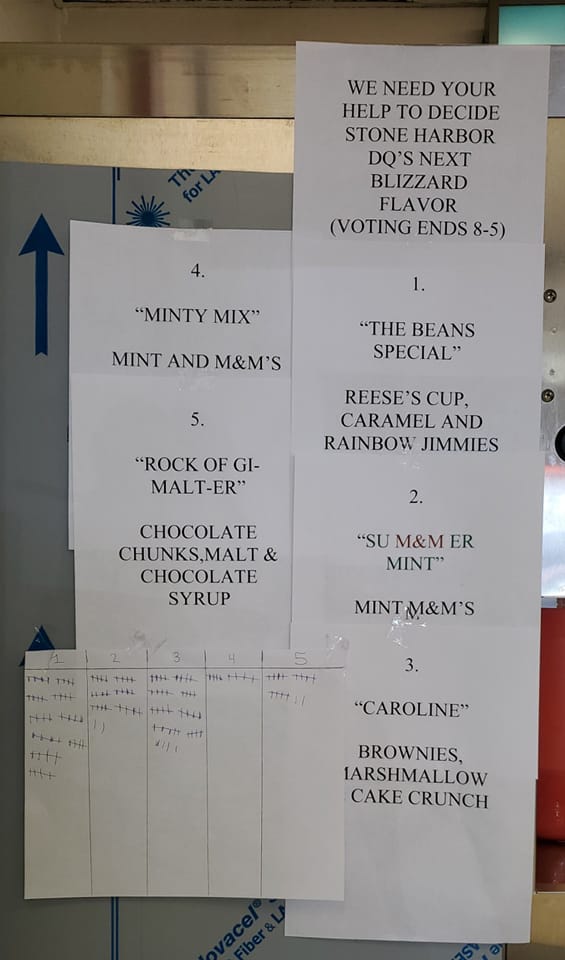 WE NEED YOUR
HELP TO DECIDE
STONE HARBOR
DQ'S NEXT
BLIZZARD
FLAVOR
(VOTING ENDS 8-5)
1.
"THE BEANS
SPECIAL"
REESE'S CUP,
CARAMEL AND
RAINBOW JIMMIES
2.
"SU M&M ER
MINT"
MINT M&M'S
3.
"CAROLINE"
BROWNIES,
MARSHMALLOW
CAKE CRUNCH
4.
"MINTY MIX"
MINT AND M&M'S
5.
"ROCK OF GI-
MALT-ER"
CHOCOLATE
CHUNKS,MALT &
CHOCOLATE
SYRUP
1 2 3 4 5
for LA
ovacel®
Fiber & LA